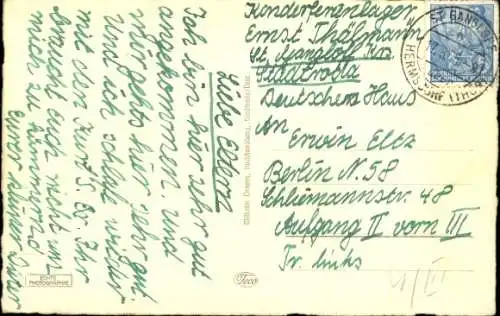 Liebe Eltern
Ich bin hier sehr gut
angekommen und
mir gehts hier sehr gut.
Und ich schlafe
mit den Ihr
braucht euch nicht um
mich zu kümmern
Euer
Konderferienlager
Ernst Thälmann
St. Gangloff Krs.
Stadtroda
Deutschem Haus
An
Erwin Eltz
Berlin N. 58
Schliemannstr. 48
Aufgang II vorn III
Tr. links
ST. GANGLOFF
HERMSDORF (THÜR)
ECHTE
PHOTOGRAPHIE
Teco